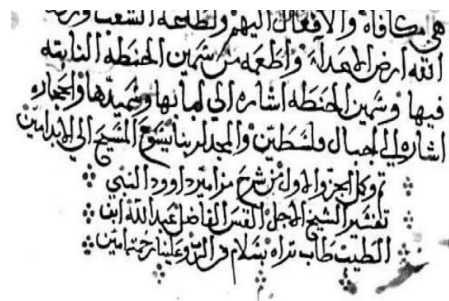 هي مكافاة والافعال اليهم ولطاعة الشعب
الله ارض الاعداء واطعمه من شمين الحنطه النابته
فيها وشمين الحنطه اشاره الي لبابها وسميدها والحجاره
اشاره الي جبال فلسطين والمجد لربنا يشوع المسيح الي الابد امين
تم وكمل الجزو الاول من شرح مزامير داوود النبي
تفسير الشيخ الاجل القس الفاضل عبد الله ابن
الطيب طاب ثراه بسلام من الرب وعلينا رحمته امين